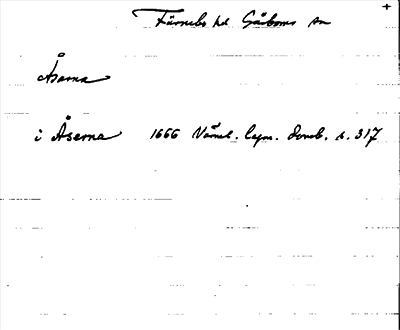 Färnebo hd Gåsborns sn +
Åsarna
i Åserna 1666 Värml. lagm. domb. s. 317